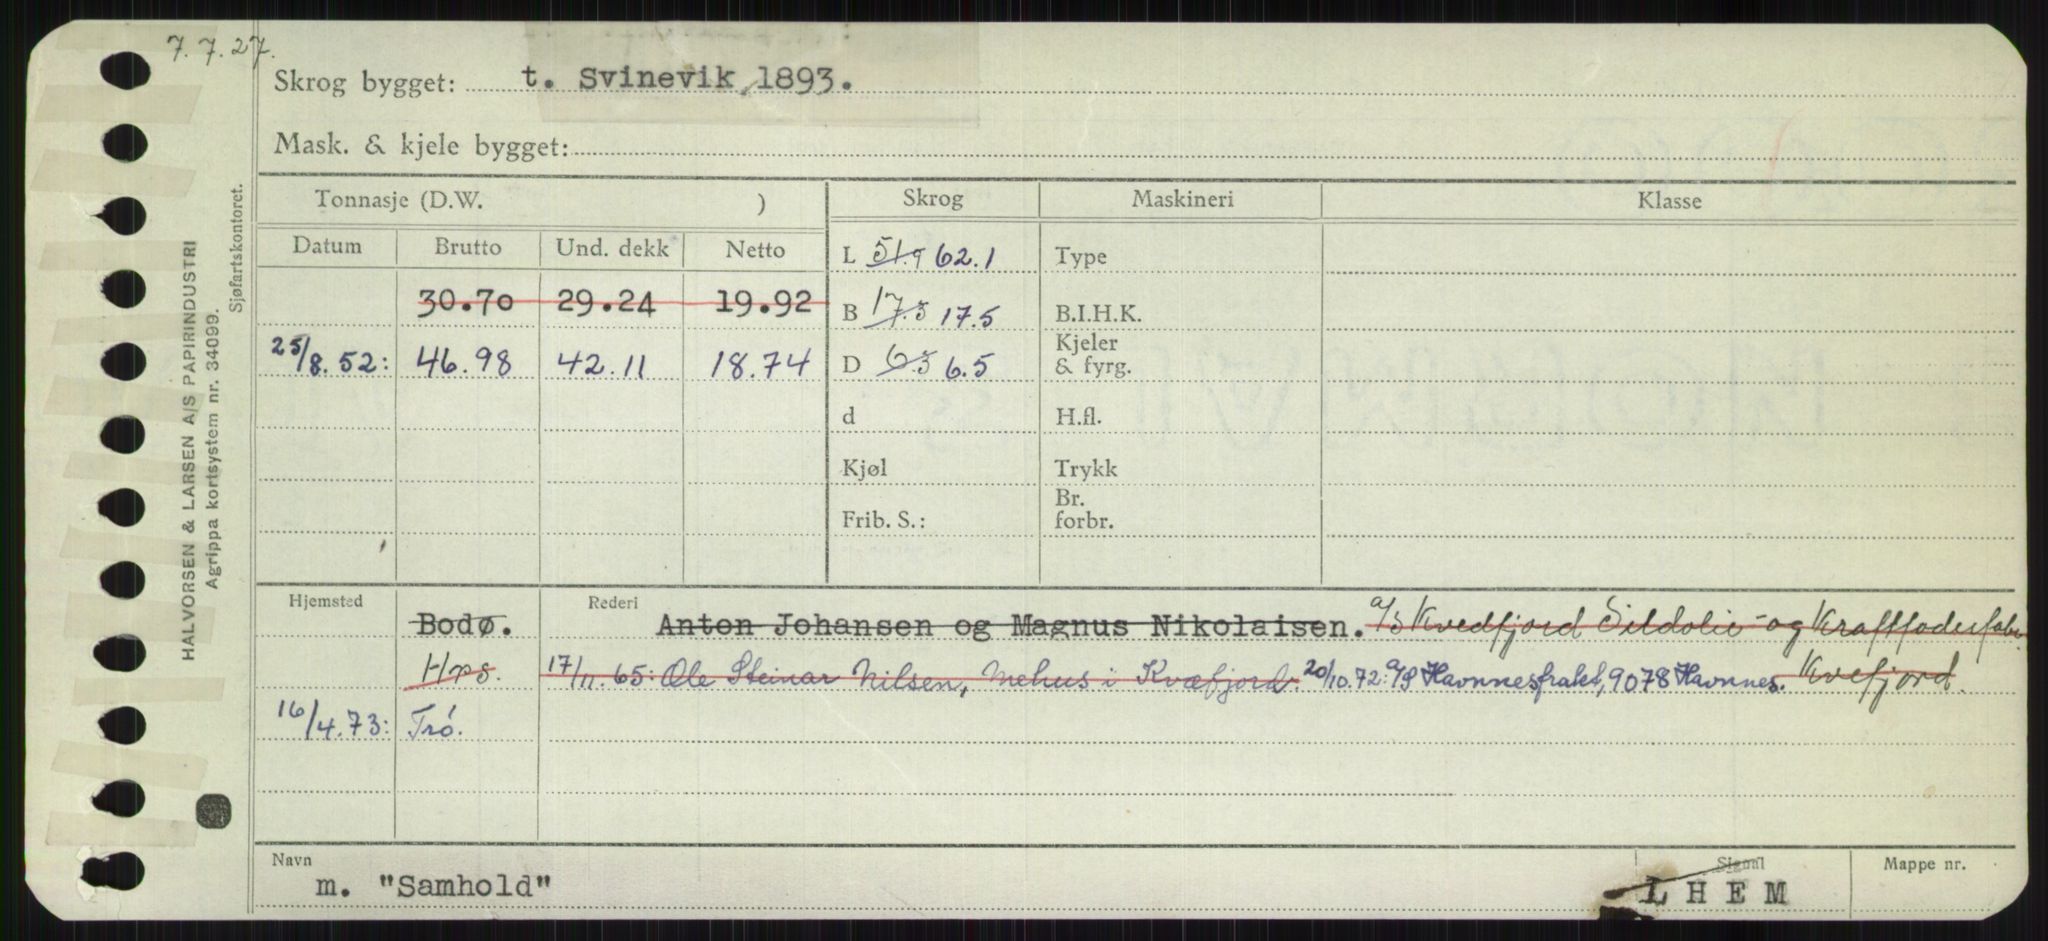 7.7.27.
Skrog bygget: t. Svinevik 1893.
Mask. & kjele bygget:
Tonnasje (D.W. ) Skrog Maskineri Klasse
Datum Brutto Und. dekk Netto L 51.9 62.1 Type
30.70 29.24 19.92 B 17.3 17.5 B.I.H.K.
25/8.52: 46.98 42.11 18.74 D 6.3 6.5 Kjeler & fyrg.
d H.fl.
Kjøl Trykk
Frib. S.: Br. forbr.
Hjemsted Rederi
Bodø. Anton Johansen og Magnus Nikolaisen. a/s Kvedfjord Sildolie- og Kraftfoderfabr.
Hps. 17/11.65: Ole Steinar Nilsen, Mehus i Kvæfjord. 20/10.72: A/S Havnnesfrakt, 9078 Havnnes. Kvefjord.
16/4.73: Trö.
Navn Signal Mappe nr.
m. "Samhold" LHEM
HALVORSEN & LARSEN A/S PAPIRINDUSTRI
Agrippa kortsystem nr. 34099.
Sjøfartskontoret.